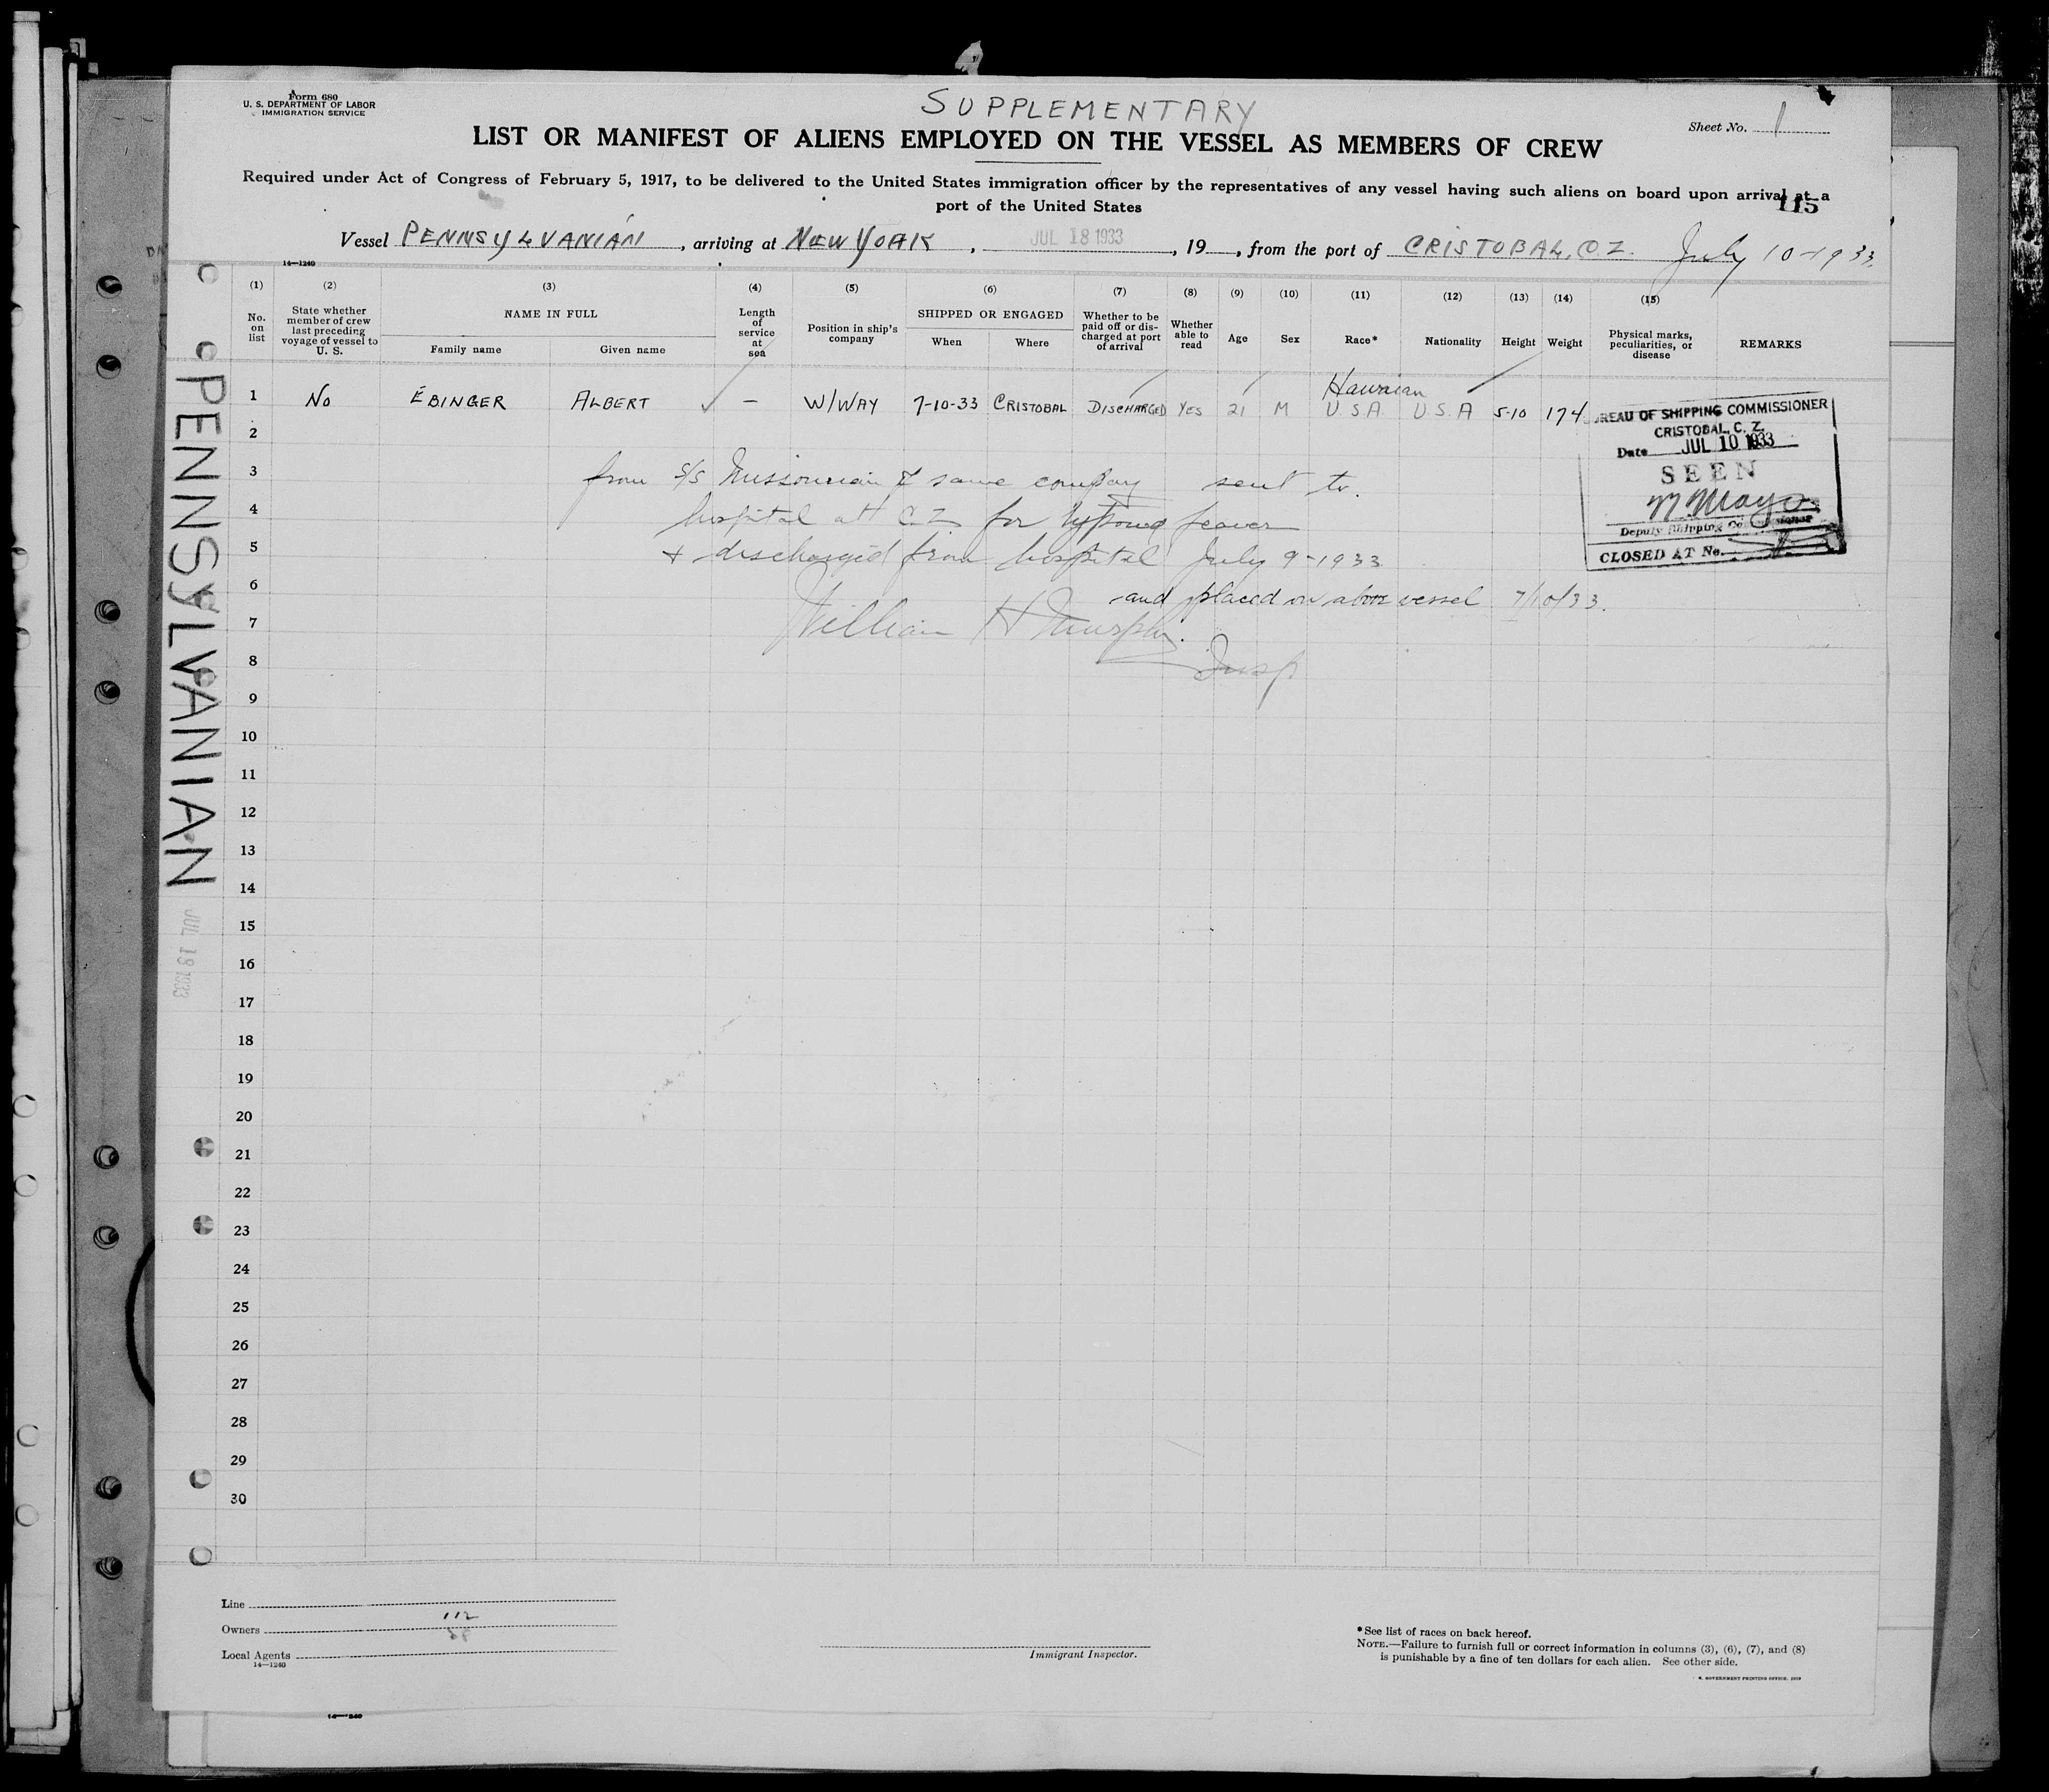 Form 680
U. S. DEPARTMENT OF LABOR
IMMIGRATION SERVICE
SUPPLEMENTARY
Sheet No. 1
LIST OR MANIFEST OF ALIENS EMPLOYED ON THE VESSEL AS MEMBERS OF CREW
Required under Act of Congress of February 5, 1917, to be delivered to the United States immigration officer by the representatives of any vessel having such aliens on board upon arrival at a
port of the United States
115
Vessel PENNSYLVANIAN, arriving at NEW YORK, JUL 18 1933, 19, from the port of CRISTOBAL, C.Z. July 10-1933.
14—1240
(1) (2) (3) (4) (5) (6) (7) (8) (9) (10) (11) (12) (13) (14) (15)
No. on list State whether member of crew last preceding voyage of vessel to U. S. NAME IN FULL Family name Given name Length of service at sea Position in ship's company SHIPPED OR ENGAGED When Where Whether to be paid off or discharged at port of arrival Whether able to read Age Sex Race* Nationality Height Weight Physical marks, peculiarities, or disease REMARKS
Hawaian
1 No EBINGER ALBERT — W/WAY 7-10-33 CRISTOBAL DISCHARGED YES 21 M U.S.A. U.S.A 5-10 174
BUREAU OF SHIPPING COMMISSIONER
CRISTOBAL, C. Z.
Date JUL 10 1933
SEEN
Deputy Shipping Commissioner
CLOSED AT No.
2
3 from S/S Missourian of same company sent to
4 hospital at C.Z for feaver
5 + discharged from hospital July 9-1933
6 and placed on above vessel 7/10/33.
7 William H Murphy.
8 Insp
9
10
11
12
13
14
15
16
17
18
19
20
21
22
23
24
25
26
27
28
29
30
PENNSYLVANIAN
JUL 19 1933
Line
112
Owners
Local Agents
14—1240
Immigrant Inspector.
*See list of races on back hereof.
NOTE.—Failure to furnish full or correct information in columns (3), (6), (7), and (8)
is punishable by a fine of ten dollars for each alien. See other side.
14—1240